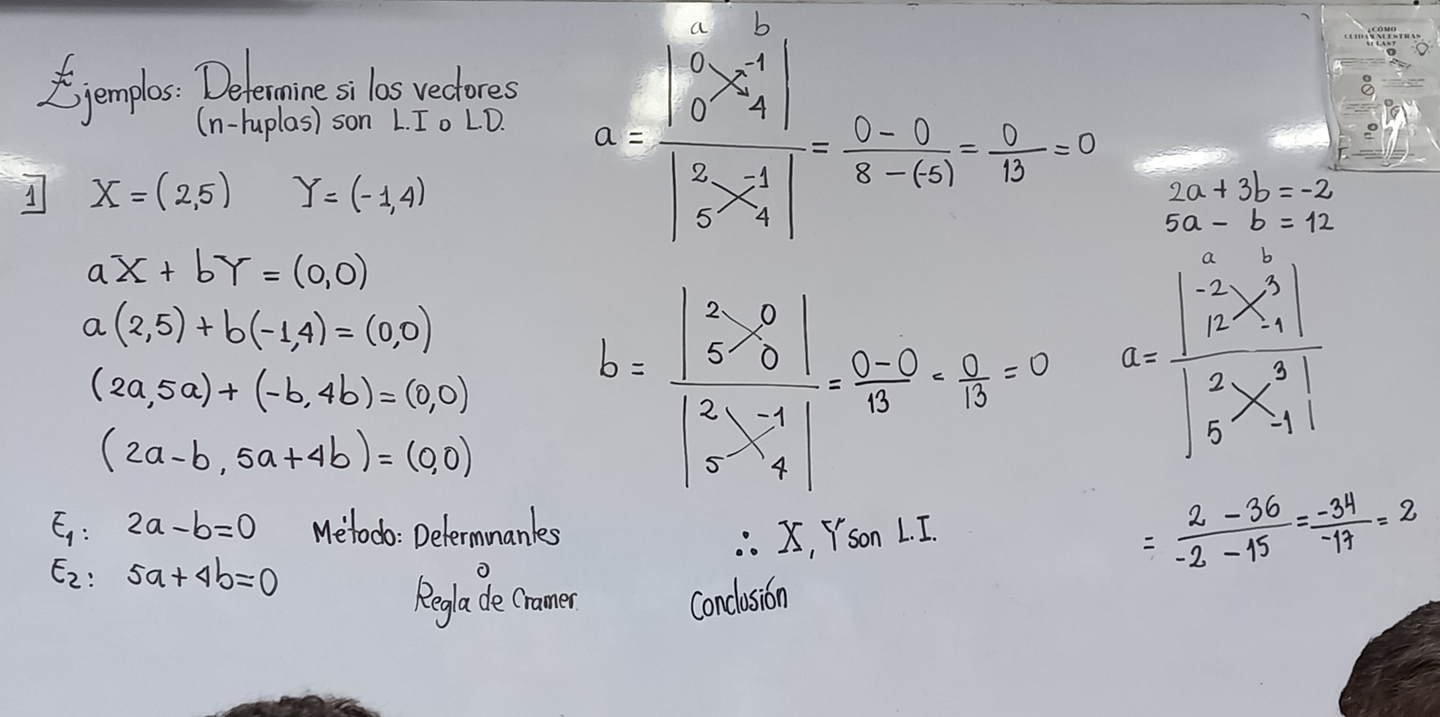 Ejemplos: Determine si los vectores
(n-tuplas) son L.I o L.D.
1] X = (2,5) Y = (-1,4)
aX + bY = (0,0)
a(2,5) + b(-1,4) = (0,0)
(2a,5a) + (-b,4b) = (0,0)
(2a-b, 5a+4b) = (0,0)
E₁: 2a-b=0 Método: Determinantes
o
E₂: 5a+4b=0 Regla de Cramer.
a b
|0 -1|
|0 4|
a = = 0 - 0 / 8 - (-5) = 0 / 13 = 0
|2 -1|
|5 4|
|2 0|
|5 0|
b = = 0-0 / 13 = 0 / 13 = 0
|2 -1|
|5 4|
∴ X, Y son L.I.
Conclusión
2a + 3b = -2
5a - b = 12
a b
|-2 3|
|12 -1|
a =
|2 3|
|5 -1|
= 2 - 36 / -2 - 15 = -34 / -17 = 2
¿CÓMO
CUIDAR NUESTRAS
AULAS?